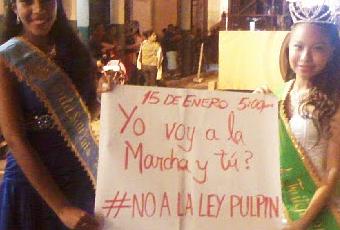 15 DE ENERO 5:00pm
Yo voy a la
Marcha y tú?
#NO A LA LEY PULPIN